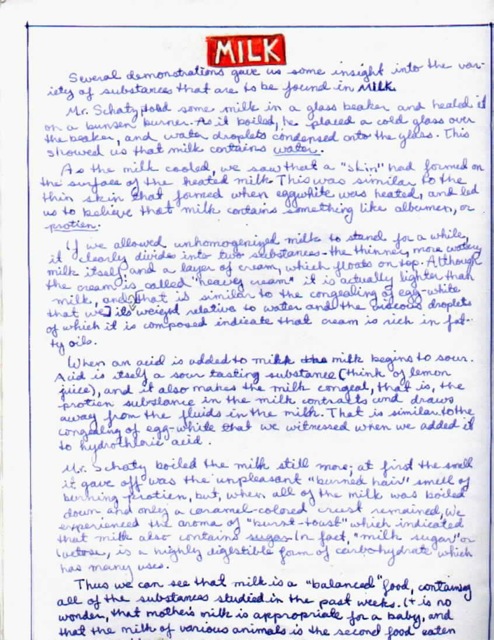 MILK
Several demonstrations gave us some insight into the var-
iety of substances that are to be found in MILK.
Mr. Schatz told some milk in a glass beaker and heated it
on a bunsen burner. As it boiled, he placed a cold glass over
the beaker, and water droplets condensed onto the glass. This
showed us that milk contains water.
As the milk cooled, we saw that a "skin" had formed on
the surface of the heated milk. This was similar to the
thin skin that formed when eggwhite was heated, and led
us to believe that milk contains something like albumen, or
protien.
If we allowed unhomogenized milk to stand for a while,
it clearly divides into two substances - the thinner, more watery
milk itself and a layer of cream, which floats on top. Although
the cream is called "heavy cream" it is actually lighter than
milk, and that is similar to the congealing of egg-white
that we its weight relative to water and the viscous droplets
of which it is composed indicate that cream is rich in fat-
ty oils.
When an acid is added to milk the milk begins to sour.
Acid is itself a sour tasting substance (think of lemon
juice), and it also makes the milk congeal, that is, the
protien substance in the milk contracts and draws
away from the fluids in the milk. That is similar to the
congealing of egg-white that we witnessed when we added it
to hydrochloric acid.
Mr. Schatz boiled the milk still more; at first the smell
it gave off was the unpleasant "burned hair" smell of
burning protien, but, when all of the milk was boiled
down and only a caramel-colored crust remained, we
experienced the aroma of "burnt-toast" which indicated
that milk also contains sugar. In fact, "milk sugar" or
lactose, is a highly digestible form of carbohydrate which
has many uses.
Thus we can see that milk is a "balanced" food, containing
all of the substances studied in the past weeks. It is no
wonder, that mother's milk is appropriate for a baby, and
that the milk of various animals is the second food eaten